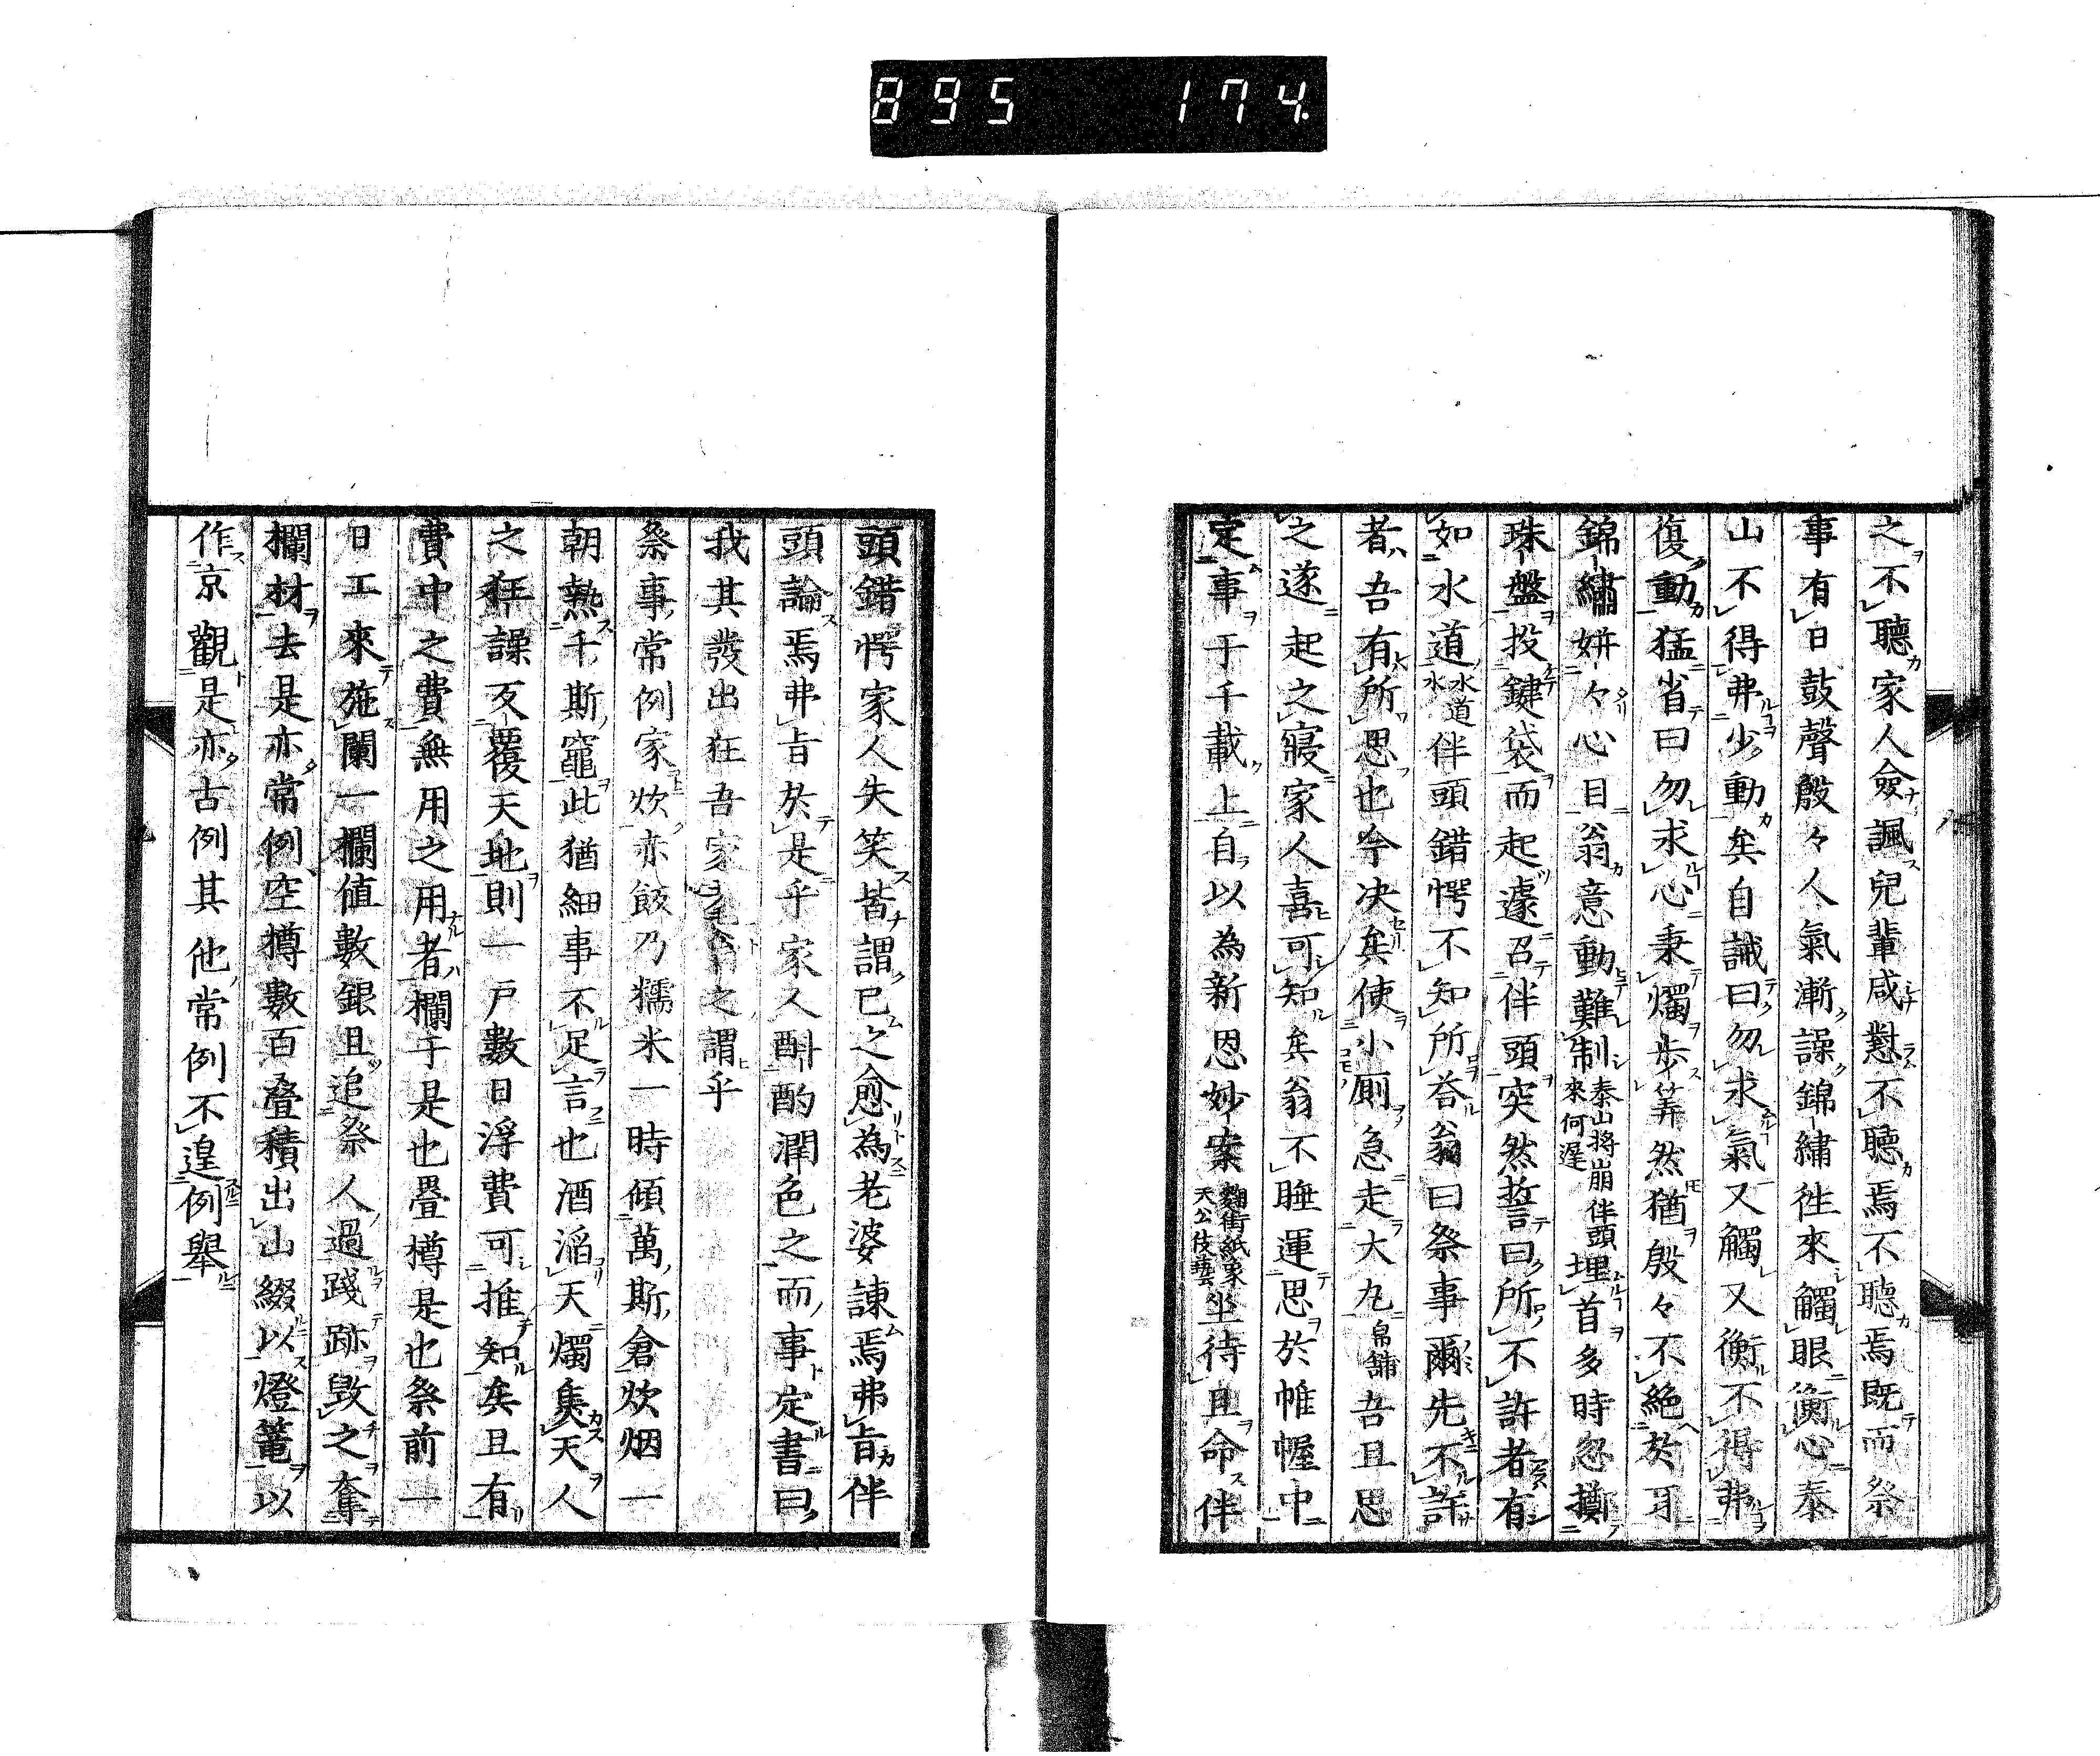 895 174
之不聽家人僉諷兒輩咸懟不聽焉不聽焉既而祭
事有日鼓聲殷々人氣漸譟錦繡徃來觸眼衡心泰
山不得弗少動矣自誡曰勿求氣又觸又衡不得弗
復動猛省曰勿求心秉燭步筭然猶殷々不絕於耳
錦繡妍々心目翁意動難制泰山將崩伴頭來何遲埋首多時忽擲
珠盤投鍵袋而起遽召伴頭突然誓曰所不許者有
如水道水道水伴頭錯愕不知所荅翁曰祭事爾先不許
者吾有所思也今决矣使小厠急走大丸帛舖吾且思
之遂起之寢家人喜可知矣翁不睡運思於帷幄中
定事于千載上自以為新恩妙案麴街紙象天公伎藝坐待旦命伴
頭錯愕家人失笑皆謂已之愈為老婆諫焉弗旨伴
頭論焉弗旨於是乎家人斟酌潤色之而事定書曰
我其發出狂吾家之謂乎
祭事常例家炊亦飯乃糯米一時傾萬斯倉炊烟一
朝熱千斯竈此猶細事不足言也酒滔天燭奠天人
之狂譟反覆天地則一戶數日浮費可推知矣且有
費中之費無用之用者欄干是也疊樽是也祭前一
日工來施闌一欄値數銀且追祭人過踐跡毀之奪
欄材去是亦常例空樽數百疊積出山綴以燈篭以
作京觀是亦古例其他常例不遑例舉